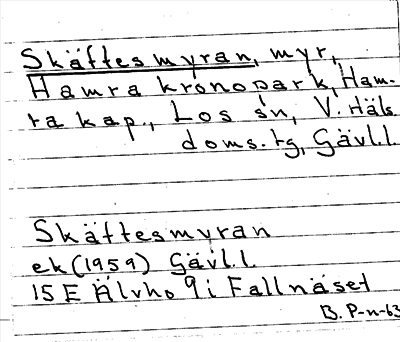 Skäftesmyran, myr,
Hamra kronopark, Ham-
ra kap., Los sn, V. Häls.
doms. tg, Gävl.l.
Skäftesmyran
ek (1959) Gävl.l.
15 E Älvho 9i Fallnäset
B. P-n-63